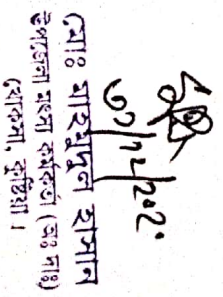 ০৩/১২/২০২০
মোঃ মাহমুদুল হাসান
উপজেলা মৎস্য কর্মকর্তা (অঃ দাঃ)
খোকসা, কুষ্টিয়া।